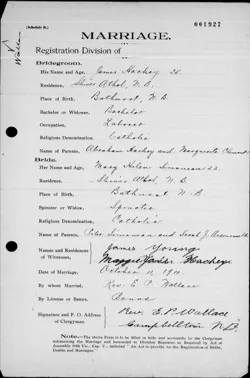 (Schedule B.)
001927
MARRIAGE.
Wallace
Registration Division of
Bridegroom.
His Name and Age, James Hachey 25
Residence, Shives Athol, N. B.
Place of Birth, Bathurst, N. B.
Bachelor or Widower, Bachelor
Occupation, Laborer
Religious Denomination, Catholic
Name of Parents, Abraham Hachey and Marguerite
Bride.
Her Name and Age, Mary Helen 22
Residence, Shives Athol, N. B.
Place of Birth, Bathurst N. B
Spinster or Widow, Spinster
Religious Denomination, Catholic
Name of Parents, Peter and Sarah J.
Names and Residences of Witnesses, James Young
Maggie Hachey
Date of Marriage, October 11, 1910.
By Whom Married, Rev. E. P. Wallace
By License or Banns, Banns
Signature and P. O. Address of Clergyman Rev. E. P. Wallace
Campbellton N.B.
NOTE—The above Form is to be filled in fully and accurately by the Clergyman
solemnizing the Marriage and returned to Division Registrar as required by Act of